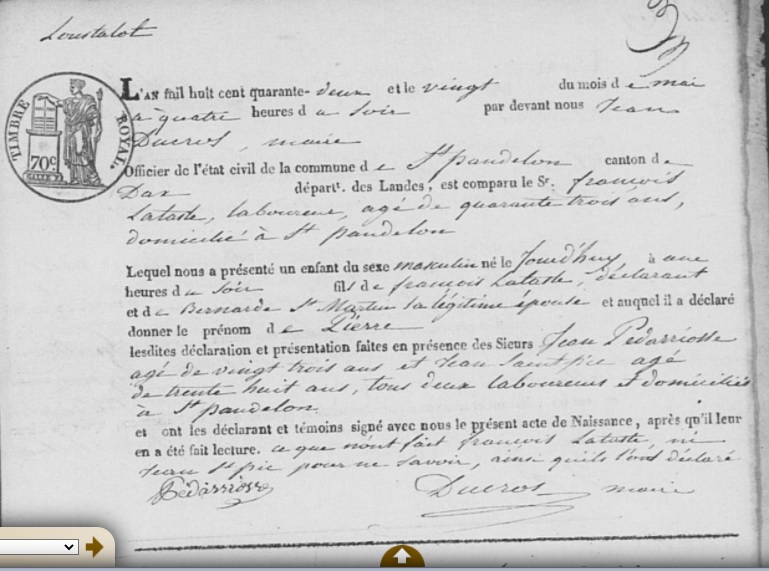 Loustalot
TIMBRE ROYAL.
70c
L'AN fail huit cent quarante-deux et le vingt du mois de mai
à quatre heures du soir par devant nous Jean
Ducros, maire
Officier de l'état civil de la commune de St pandelon canton de
Dax départt. des Landes, est comparu le Sr. françois
Lataste, laboureur, agé de quarante trois ans,
domicilié à St pandelon
Lequel nous a présenté un enfant du sexe masculin né le Jourd'huy à une
heures du soir fils de françois Lataste, déclarant
et de Bernarde St Martin sa légitime épouse et auquel il a déclaré
donner le prénom de Pierre
lesdites déclaration et présentation faites en présence des Sieurs Jean Pédarriosse
agé de vingt trois ans et Jean Saint pic agé
de trente huit ans, tous deux laboureurs et domiciliés
à St pandelon.
et ont les déclarant et témoins signé avec nous le présent acte de Naissance, après qu'il leur
en a été fait lecture. ce que n'ont fait françois Lataste, ni
Jean St pic pour ne savoir, ainsi qu'ils l'ont déclaré
Pédarriosse Ducros maire